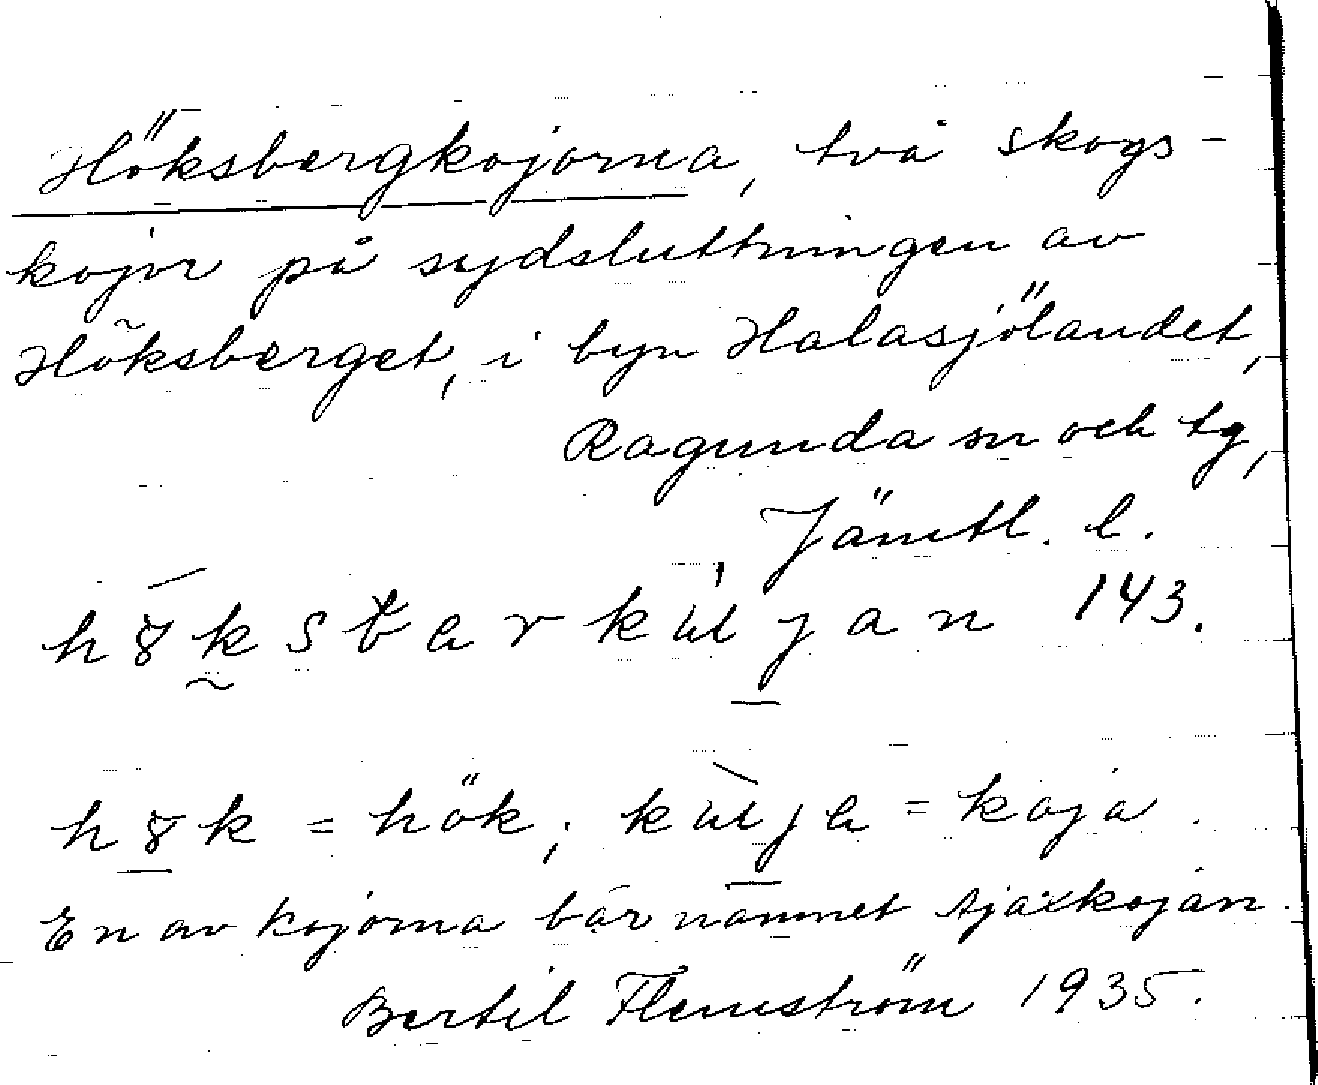 Höksbergkojorna, två skogs-
kojor på sydsluttningen av
Höksberget, i byn Halasjölandet,
Ragunda sn och tg,
Jämtl. l.
143.
= hök; = koja.
En av kojorna bär namnet Ajaxkojan.
Bertil Flemström 1935.